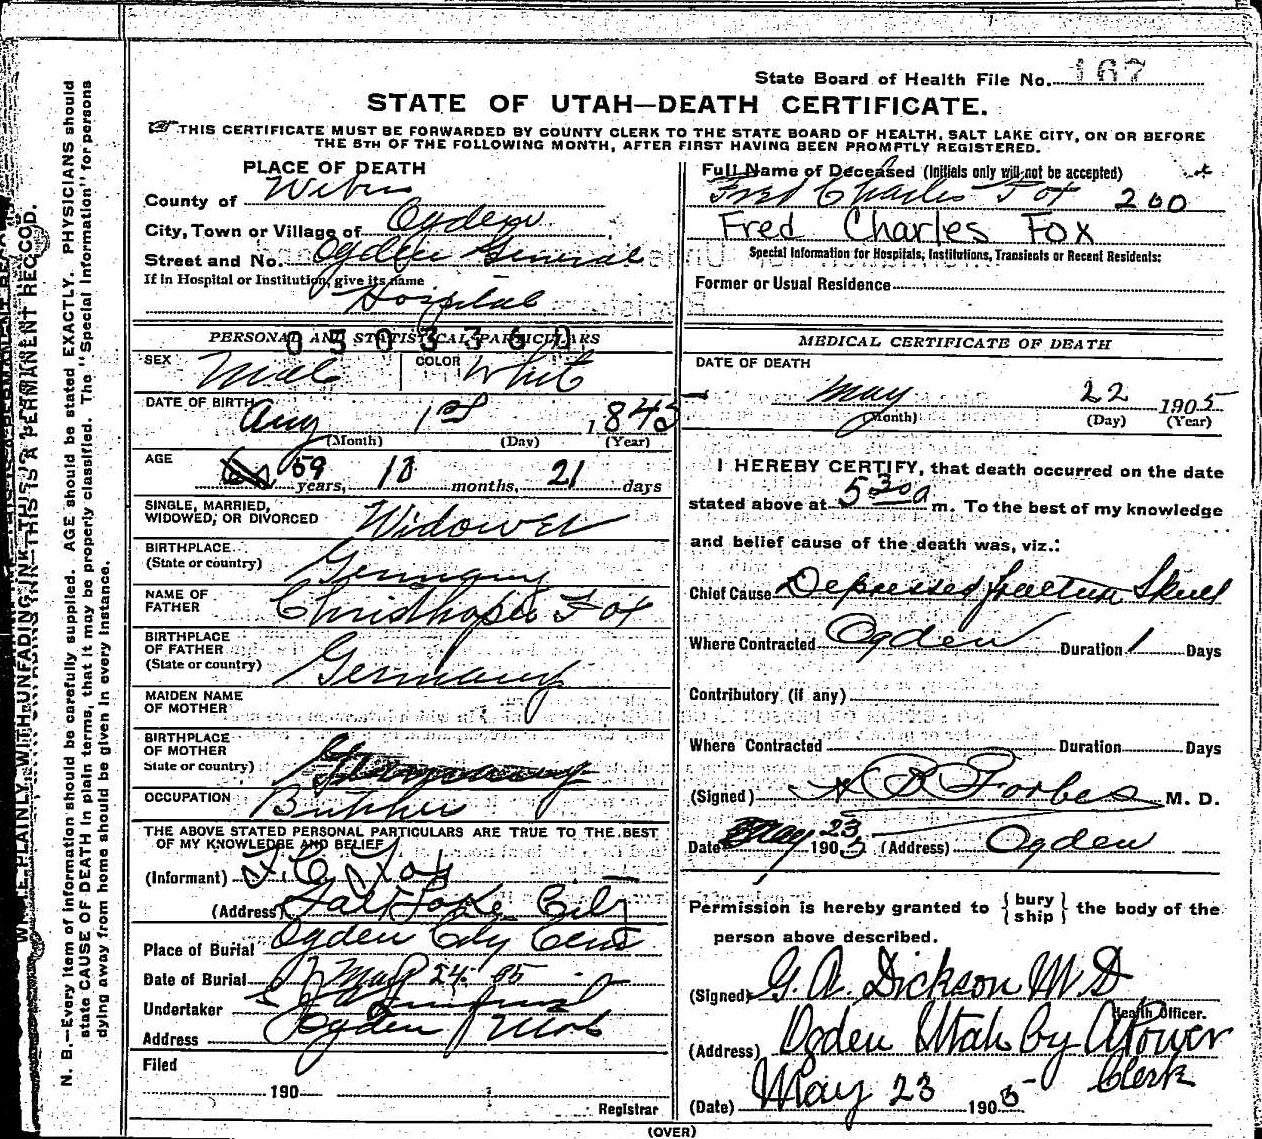 State Board of Health File No. 167
STATE OF UTAH—DEATH CERTIFICATE.
THIS CERTIFICATE MUST BE FORWARDED BY COUNTY CLERK TO THE STATE BOARD OF HEALTH, SALT LAKE CITY, ON OR BEFORE
THE 5TH OF THE FOLLOWING MONTH, AFTER FIRST HAVING BEEN PROMPTLY REGISTERED.
PLACE OF DEATH
County of Weber
City, Town or Village of Ogden
Street and No. Ogden General
If in Hospital or Institution, give its name
Hospital
PERSONAL AND STATISTICAL PARTICULARS
0503360
SEX Male COLOR White
DATE OF BIRTH Aug 1st 1845
(Month) (Day) (Year)
AGE 59 years, 10 months, 21 days
SINGLE, MARRIED,
WIDOWED, OR DIVORCED Widower
BIRTHPLACE
(State or country) Germany
NAME OF
FATHER Christhoper Fox
BIRTHPLACE
OF FATHER
(State or country) Germany
MAIDEN NAME
OF MOTHER
BIRTHPLACE
OF MOTHER
State or country) Germany
OCCUPATION Butcher
THE ABOVE STATED PERSONAL PARTICULARS ARE TRUE TO THE BEST
OF MY KNOWLEDGE AND BELIEF
(Informant) F. C. Fox
(Address) Salt Lake City
Place of Burial Ogden City Cem
Date of Burial May 24 05
Undertaker
Address Ogden Utah
Filed
190
Registrar
Full Name of Deceased (Initials only will not be accepted)
Fred Charles Fox 200
Fred Charles Fox
Special Information for Hospitals, Institutions, Transients or Recent Residents:
Former or Usual Residence
MEDICAL CERTIFICATE OF DEATH
DATE OF DEATH
May 22 1905
(Month) (Day) (Year)
I HEREBY CERTIFY, that death occurred on the date
stated above at 5 30 a m. To the best of my knowledge
and belief cause of the death was, viz.:
Chief Cause Depressed fracture Skull
Where Contracted Ogden Duration 1 Days
Contributory (if any)
Where Contracted Duration Days
(Signed) R Forbes M. D.
Date May 23 1905 (Address) Ogden
Permission is hereby granted to { bury ship } the body of the
person above described.
(Signed) G. A. Dickson M D
Health Officer.
(Address) Ogden Utah by A Power
Clerk
(Date) May 23 1905
(OVER)
N. B.—Every item of information should be carefully supplied. AGE should be stated EXACTLY. PHYSICIANS should
state CAUSE OF DEATH in plain terms, that it may be properly classified. The "Special Information" for persons
dying away from home should be given in every instance.
WRITE PLAINLY, WITH UNFADING INK—THIS IS A PERMANENT RECORD.